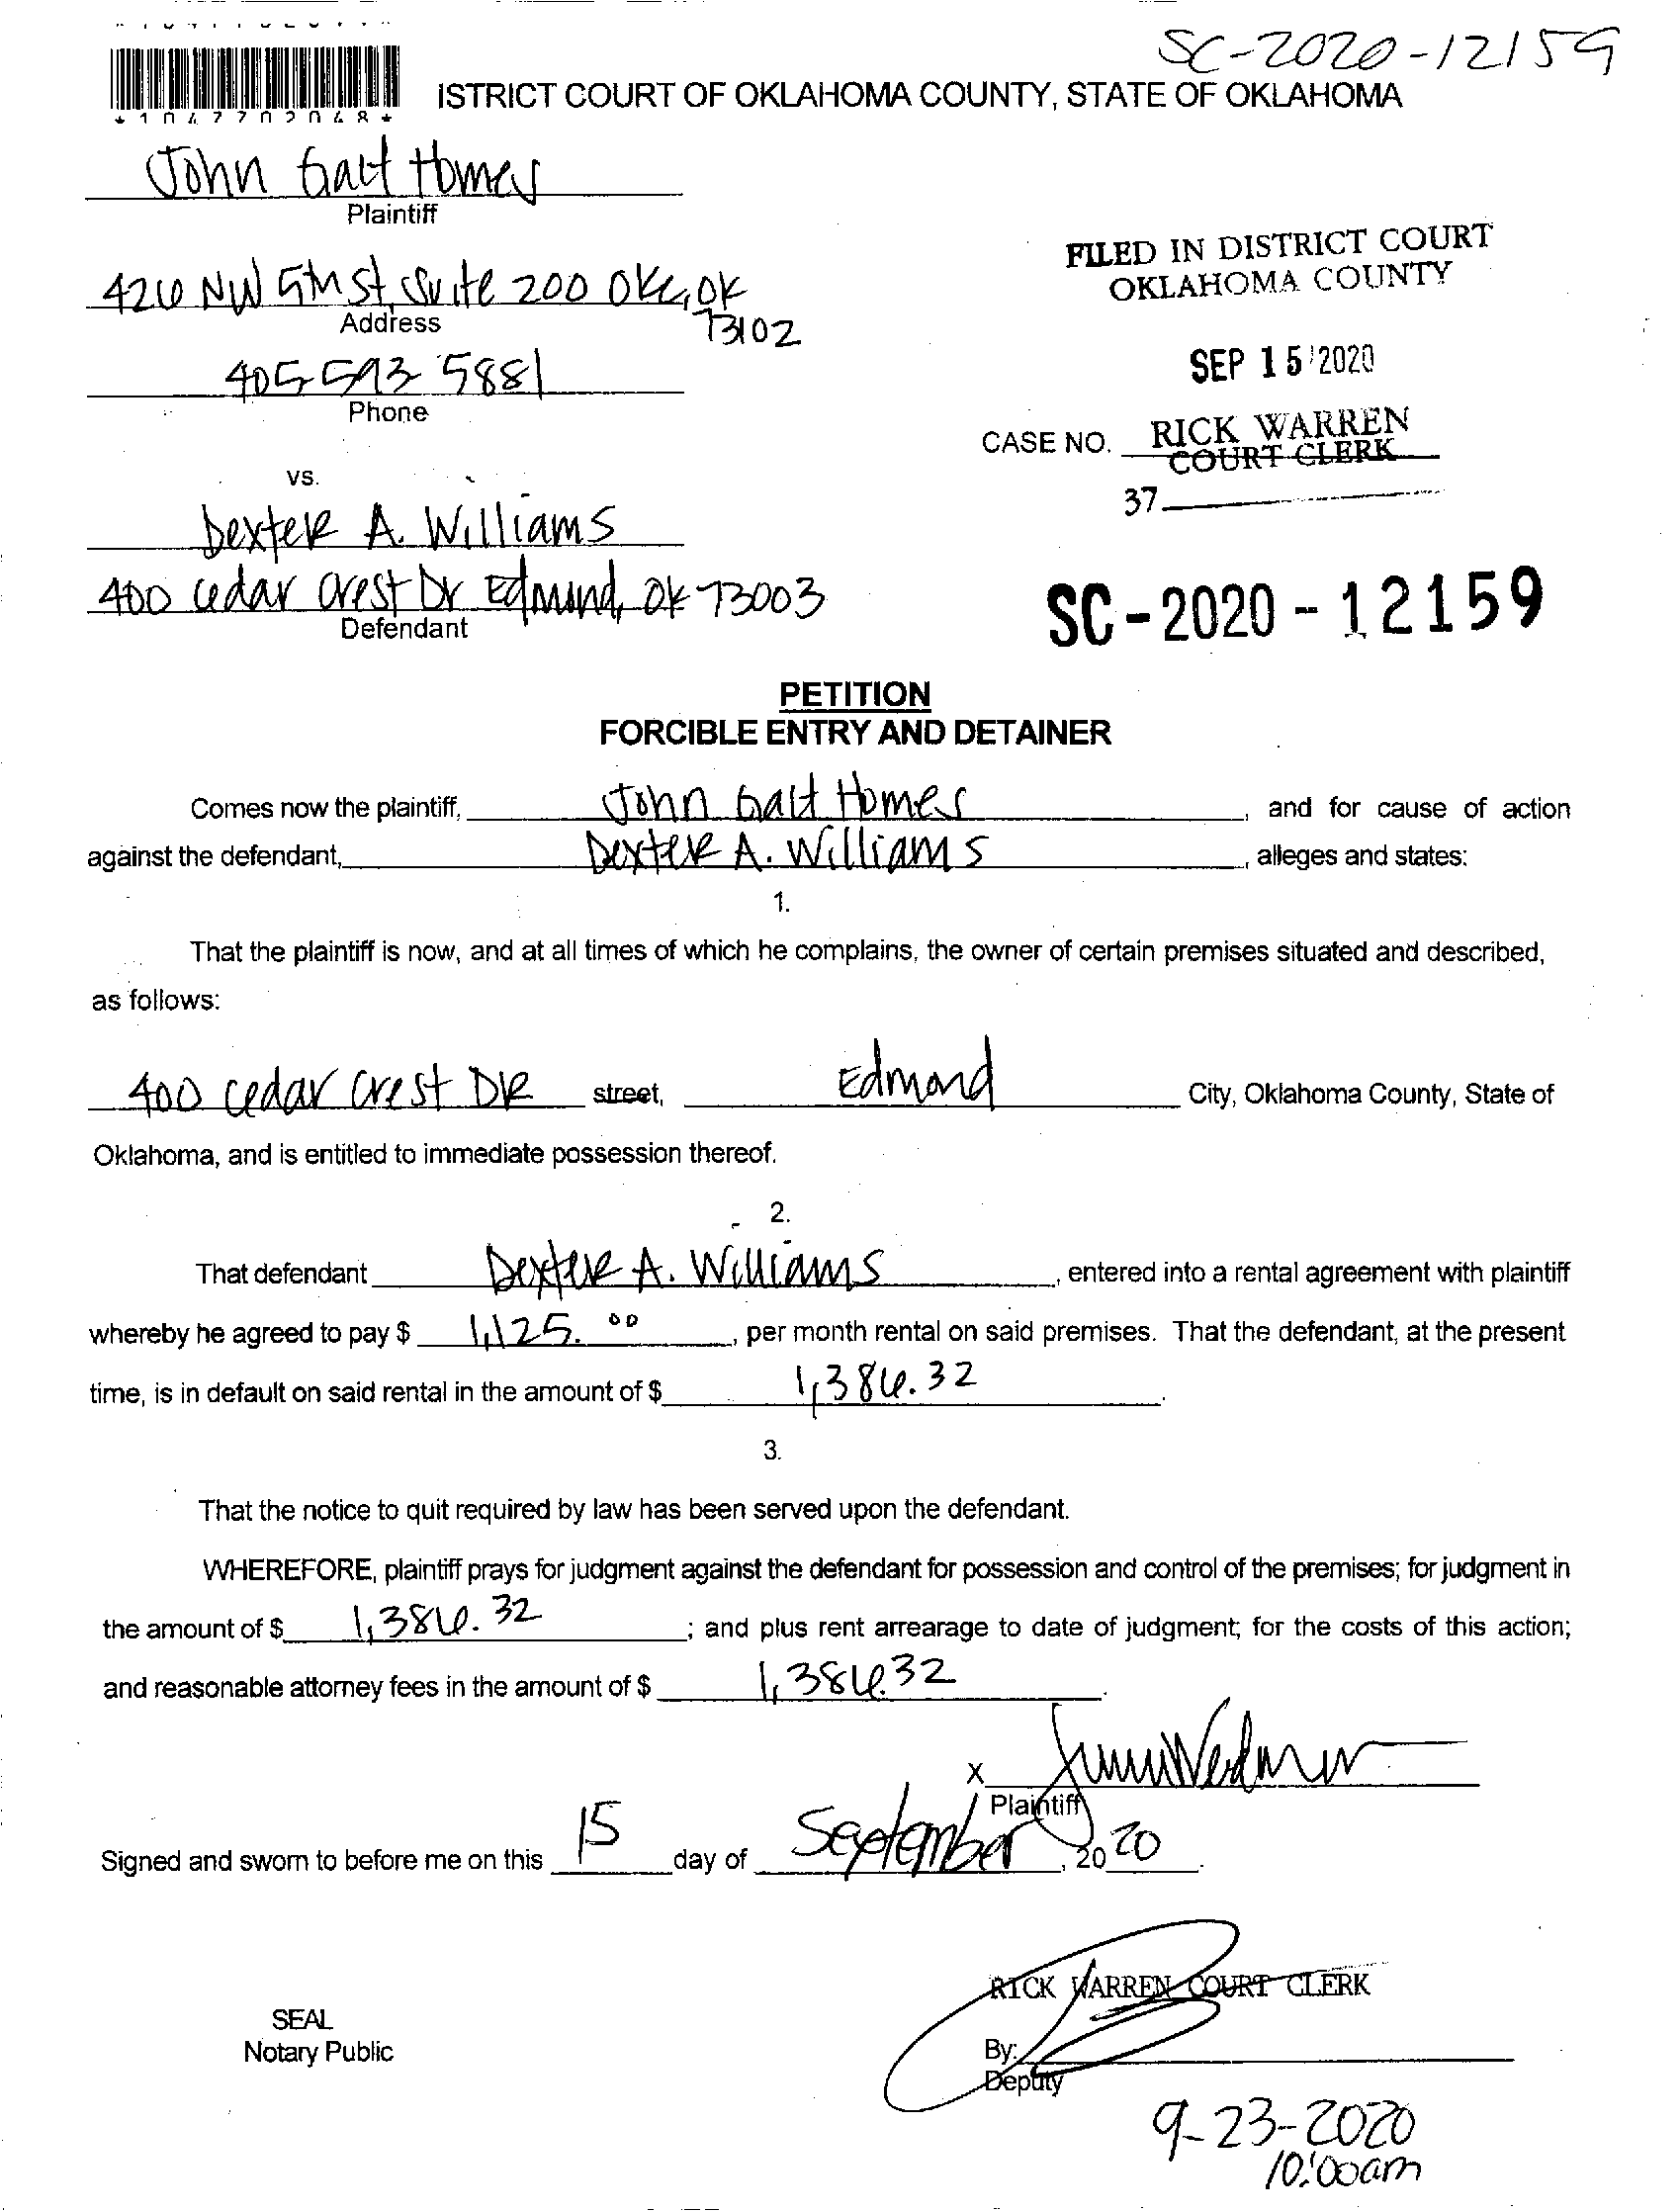 SC-2020-12159
ISTRICT COURT OF OKLAHOMA COUNTY, STATE OF OKLAHOMA
*1047702048*
John Galt Homes
Plaintiff
FILED IN DISTRICT COURT
OKLAHOMA COUNTY
426 NW 5th St, Suite 200 OKC, OK
73102
Address
SEP 15 2020
405 593 5881
Phone
CASE NO. RICK WARREN
COURT CLERK
vs.
37
Dexter A. Williams
400 Cedar Crest Dr Edmond, OK 73003
Defendant
SC-2020-12159
PETITION
FORCIBLE ENTRY AND DETAINER
Comes now the plaintiff, John Galt Homes, and for cause of action
against the defendant, Dexter A. Williams, alleges and states:
1.
That the plaintiff is now, and at all times of which he complains, the owner of certain premises situated and described,
as follows:
400 Cedar Crest DR street, Edmond City, Oklahoma County, State of
Oklahoma, and is entitled to immediate possession thereof.
2.
That defendant Dexter A. Williams, entered into a rental agreement with plaintiff
whereby he agreed to pay $ 1,125.00, per month rental on said premises. That the defendant, at the present
time, is in default on said rental in the amount of $ 1,386.32.
3.
That the notice to quit required by law has been served upon the defendant.
WHEREFORE, plaintiff prays for judgment against the defendant for possession and control of the premises; for judgment in
the amount of $ 1,386.32; and plus rent arrearage to date of judgment; for the costs of this action;
and reasonable attorney fees in the amount of $ 1,386.32.
X
Plaintiff
Signed and sworn to before me on this 15 day of September, 2020.
RICK WARREN COURT CLERK
SEAL
Notary Public
By:
Deputy
9-23-2020
10:00am